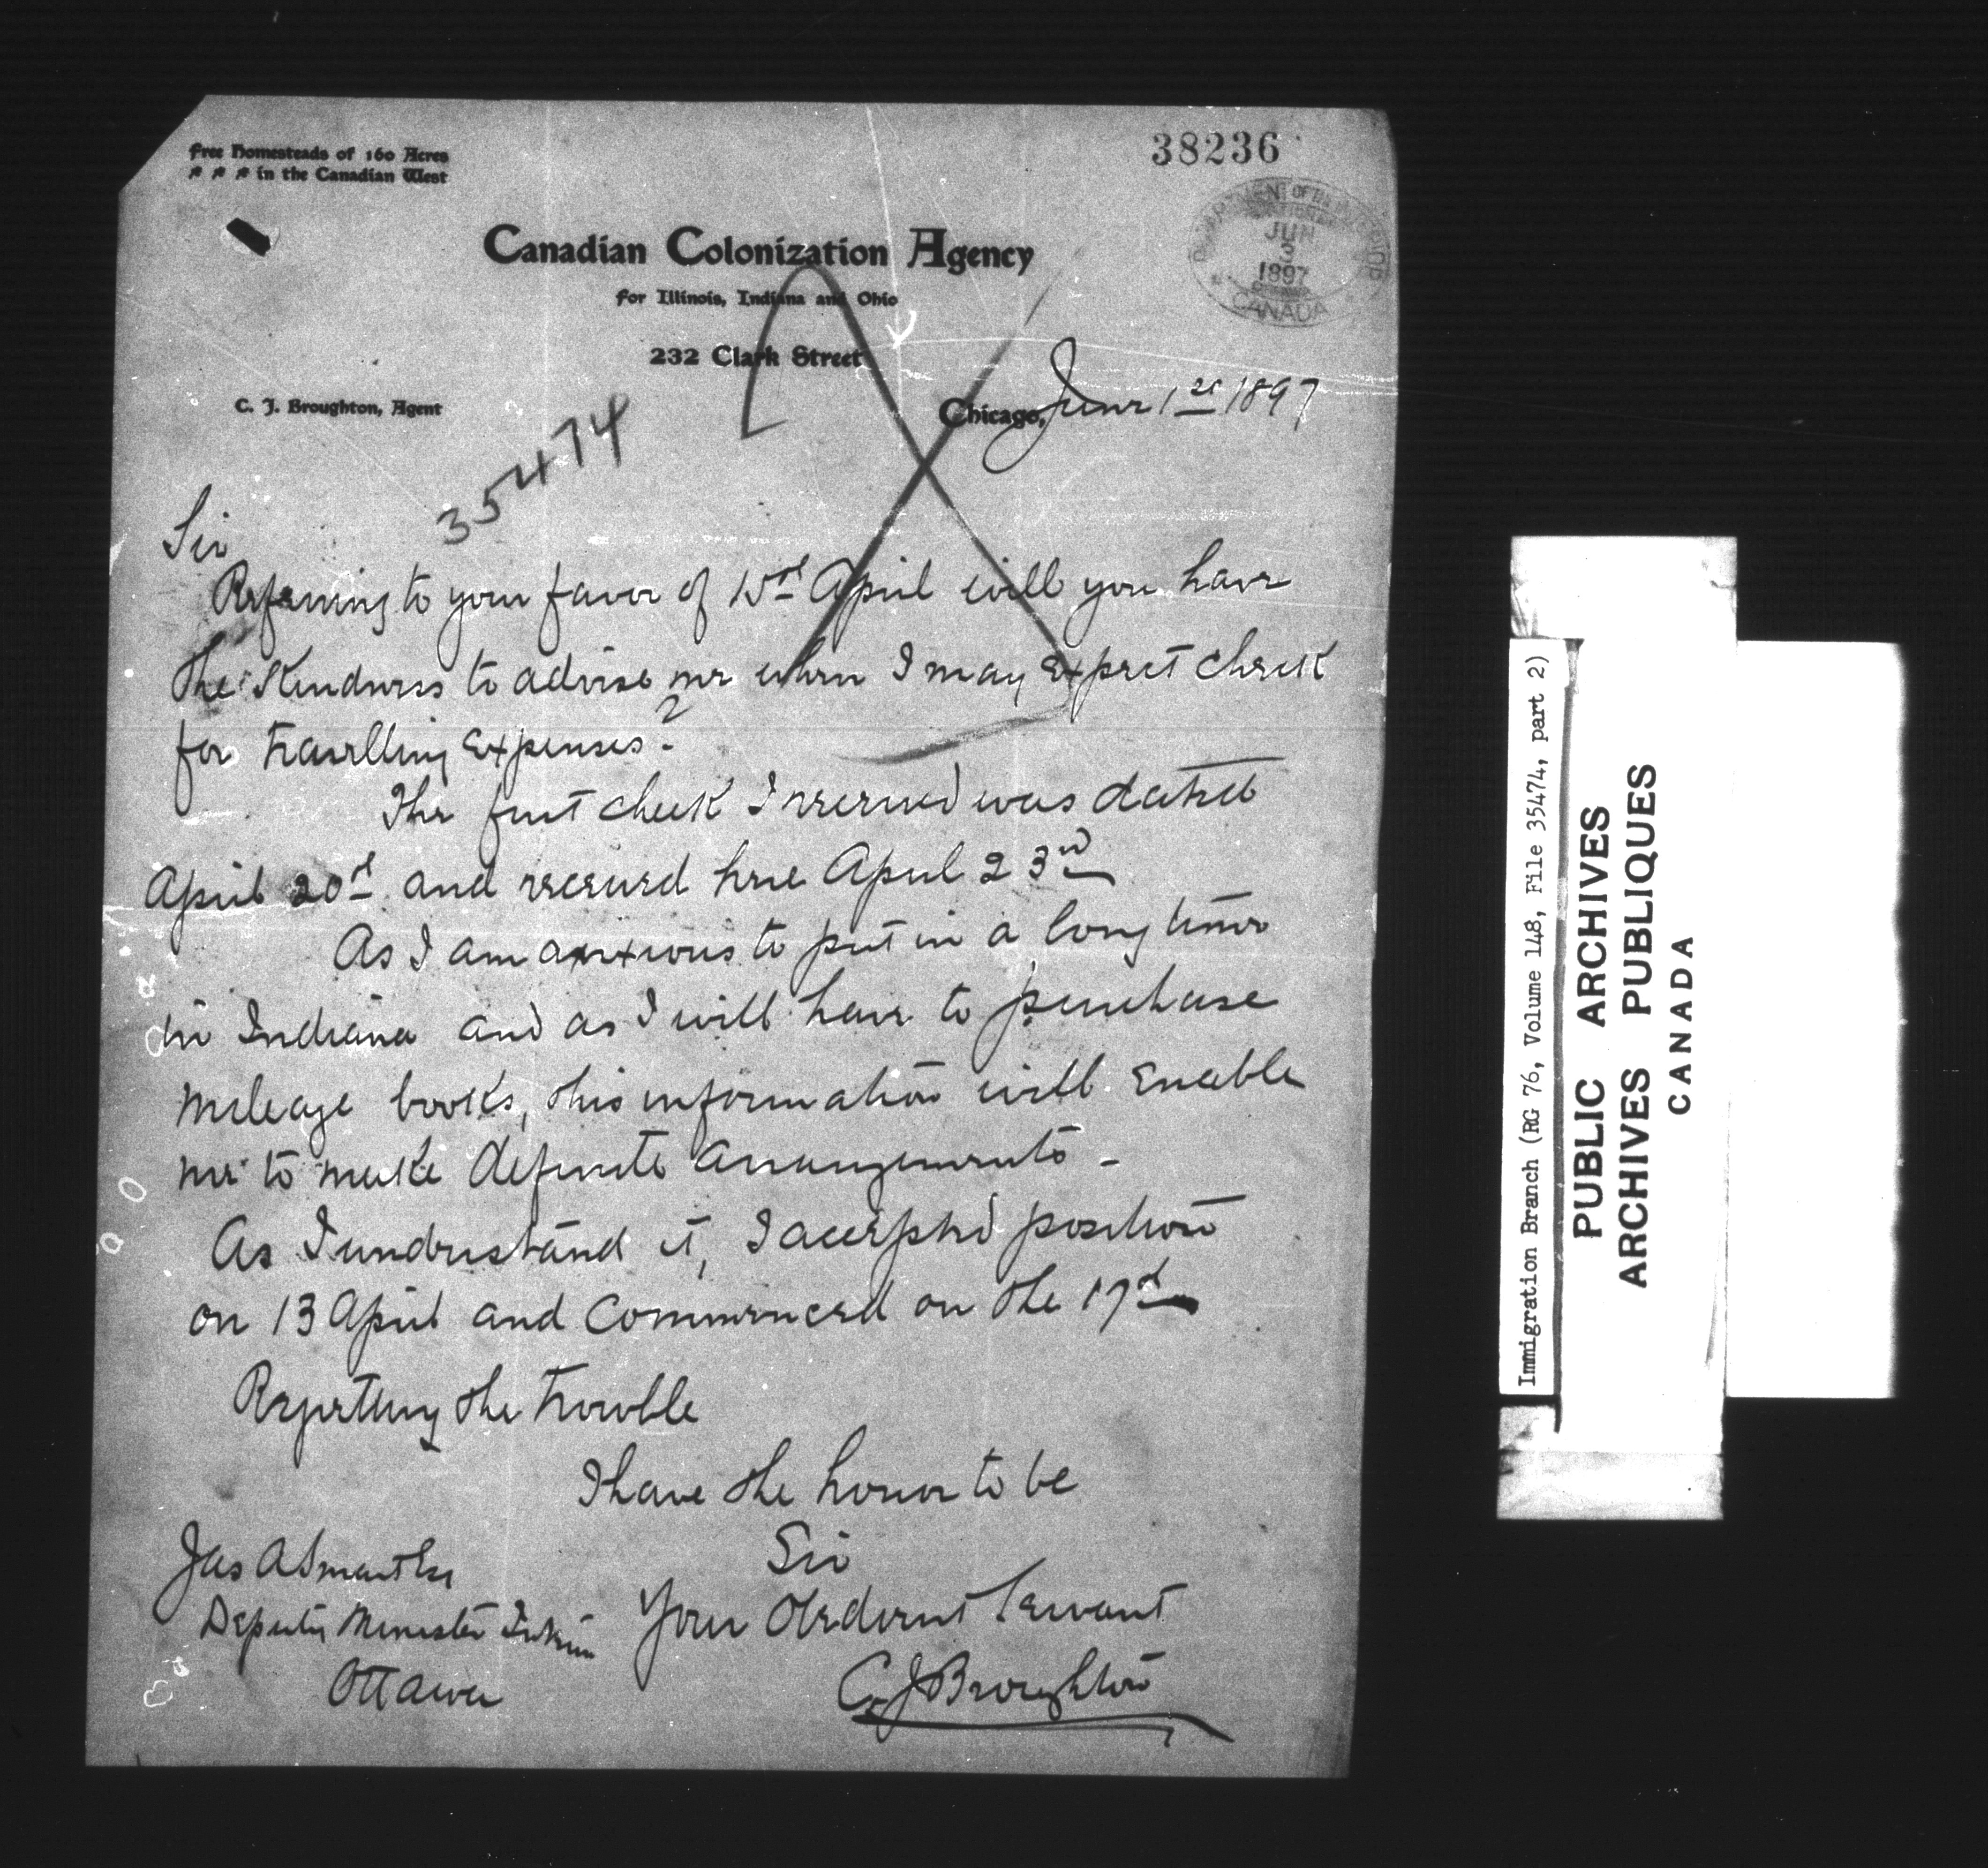 38236
Free Homesteads of 160 Acres
in the Canadian West
DEPARTMENT OF THE INTERIOR
JUN
3
1897
CANADA
Canadian Colonization Agency
for Illinois, Indiana and Ohio
232 Clark Street
C. J. Broughton, Agent
Chicago, June 1st 1897
35474
Sir
Referring to your favor of April will you have
the Kindness to advise me when I may Expect check
for travelling Expenses?
The first check I received was dated
April 20th and received here April 23rd
As I am anxious to put in a long time
in Indiana and as I will have to purchase
mileage books, this information will Enable
me to make definite arrangements -
As I understand it, I accepted position
on 13 April and Commenced on the 17th
Regretting the trouble
I have the honor to be
Sir
Your Obedient Servant
C. J. Broughton
Jas A Smart Esq
Deputy Minister Interior
Ottawa
Immigration Branch (RG 76, Volume 148, File 35474, part 2)
PUBLIC ARCHIVES
ARCHIVES PUBLIQUES
CANADA